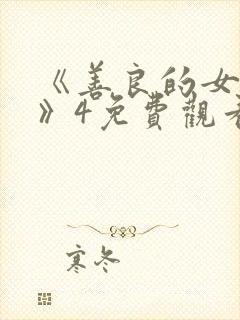 《善良的女
》4免費觀看
寒冬